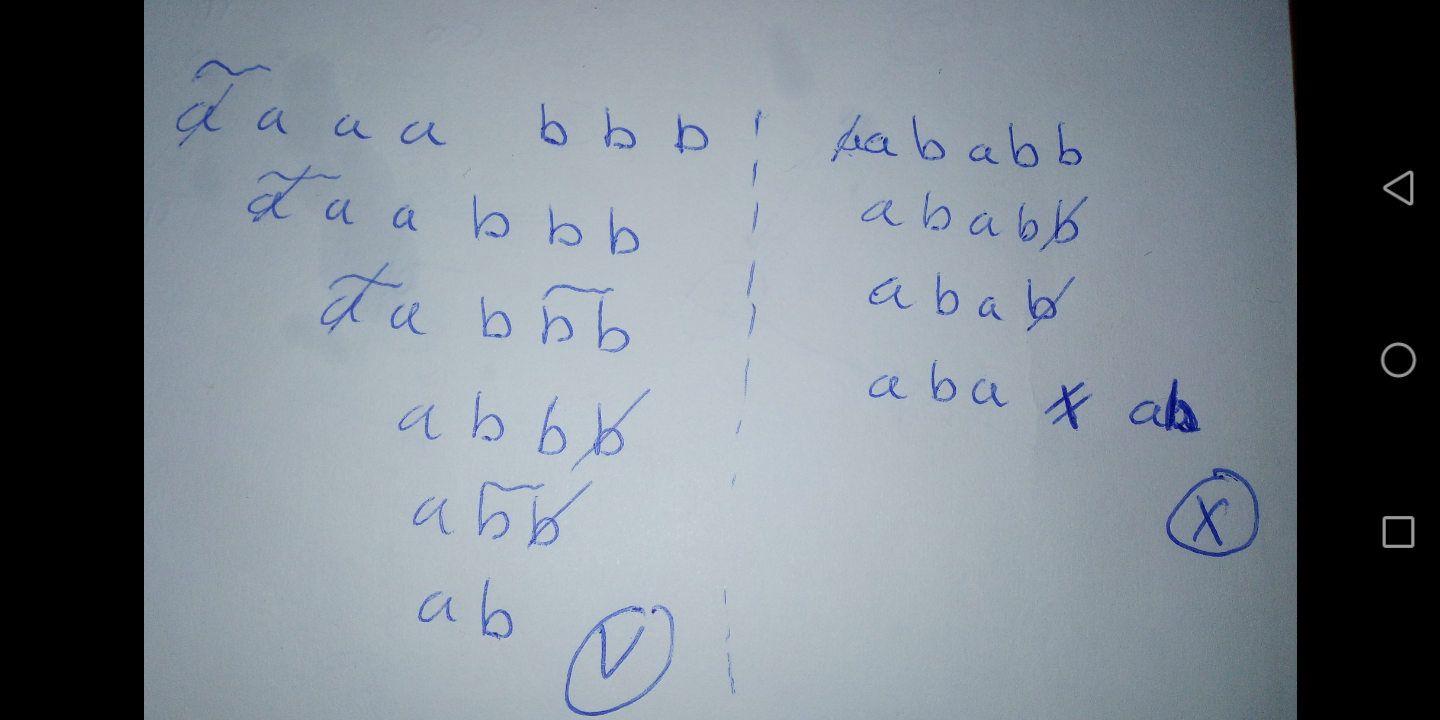 a a a a b b b
a a a b b b
a a b b b
a b b b
a b b
a b
V
a a b a b b
a b a b b
a b a b
a b a ≠ a b
X